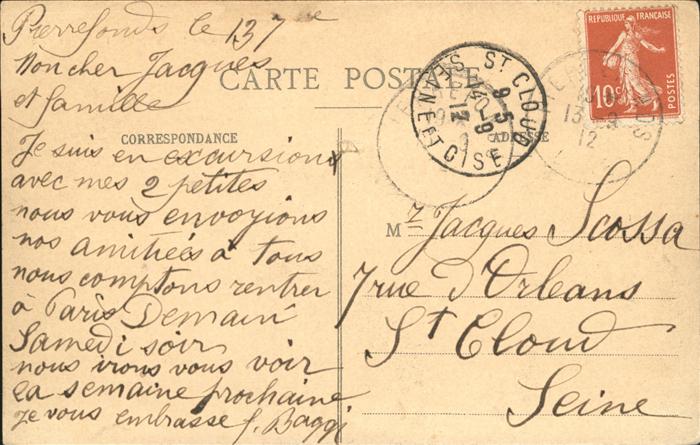 Pierrefonds le 13 7me
Mon cher Jacques
et famille
CARTE POSTALE
CORRESPONDANCE
ADRESSE
Je suis en excursions
avec mes 2 petites
nous vous envoyions
nos amitiées à tous
nous comptons rentrer
à Paris Demain
Samedi soir
nous irons vous voir
la semaine prochaine
je vous embrasse J. Baggi
RÉPUBLIQUE FRANÇAISE
10c
POSTES
ST CLOUD
9-5
12
SEINE ET OISE
12
Mr Jacques Scossa
7 rue d'Orleans
St Cloud
Seine